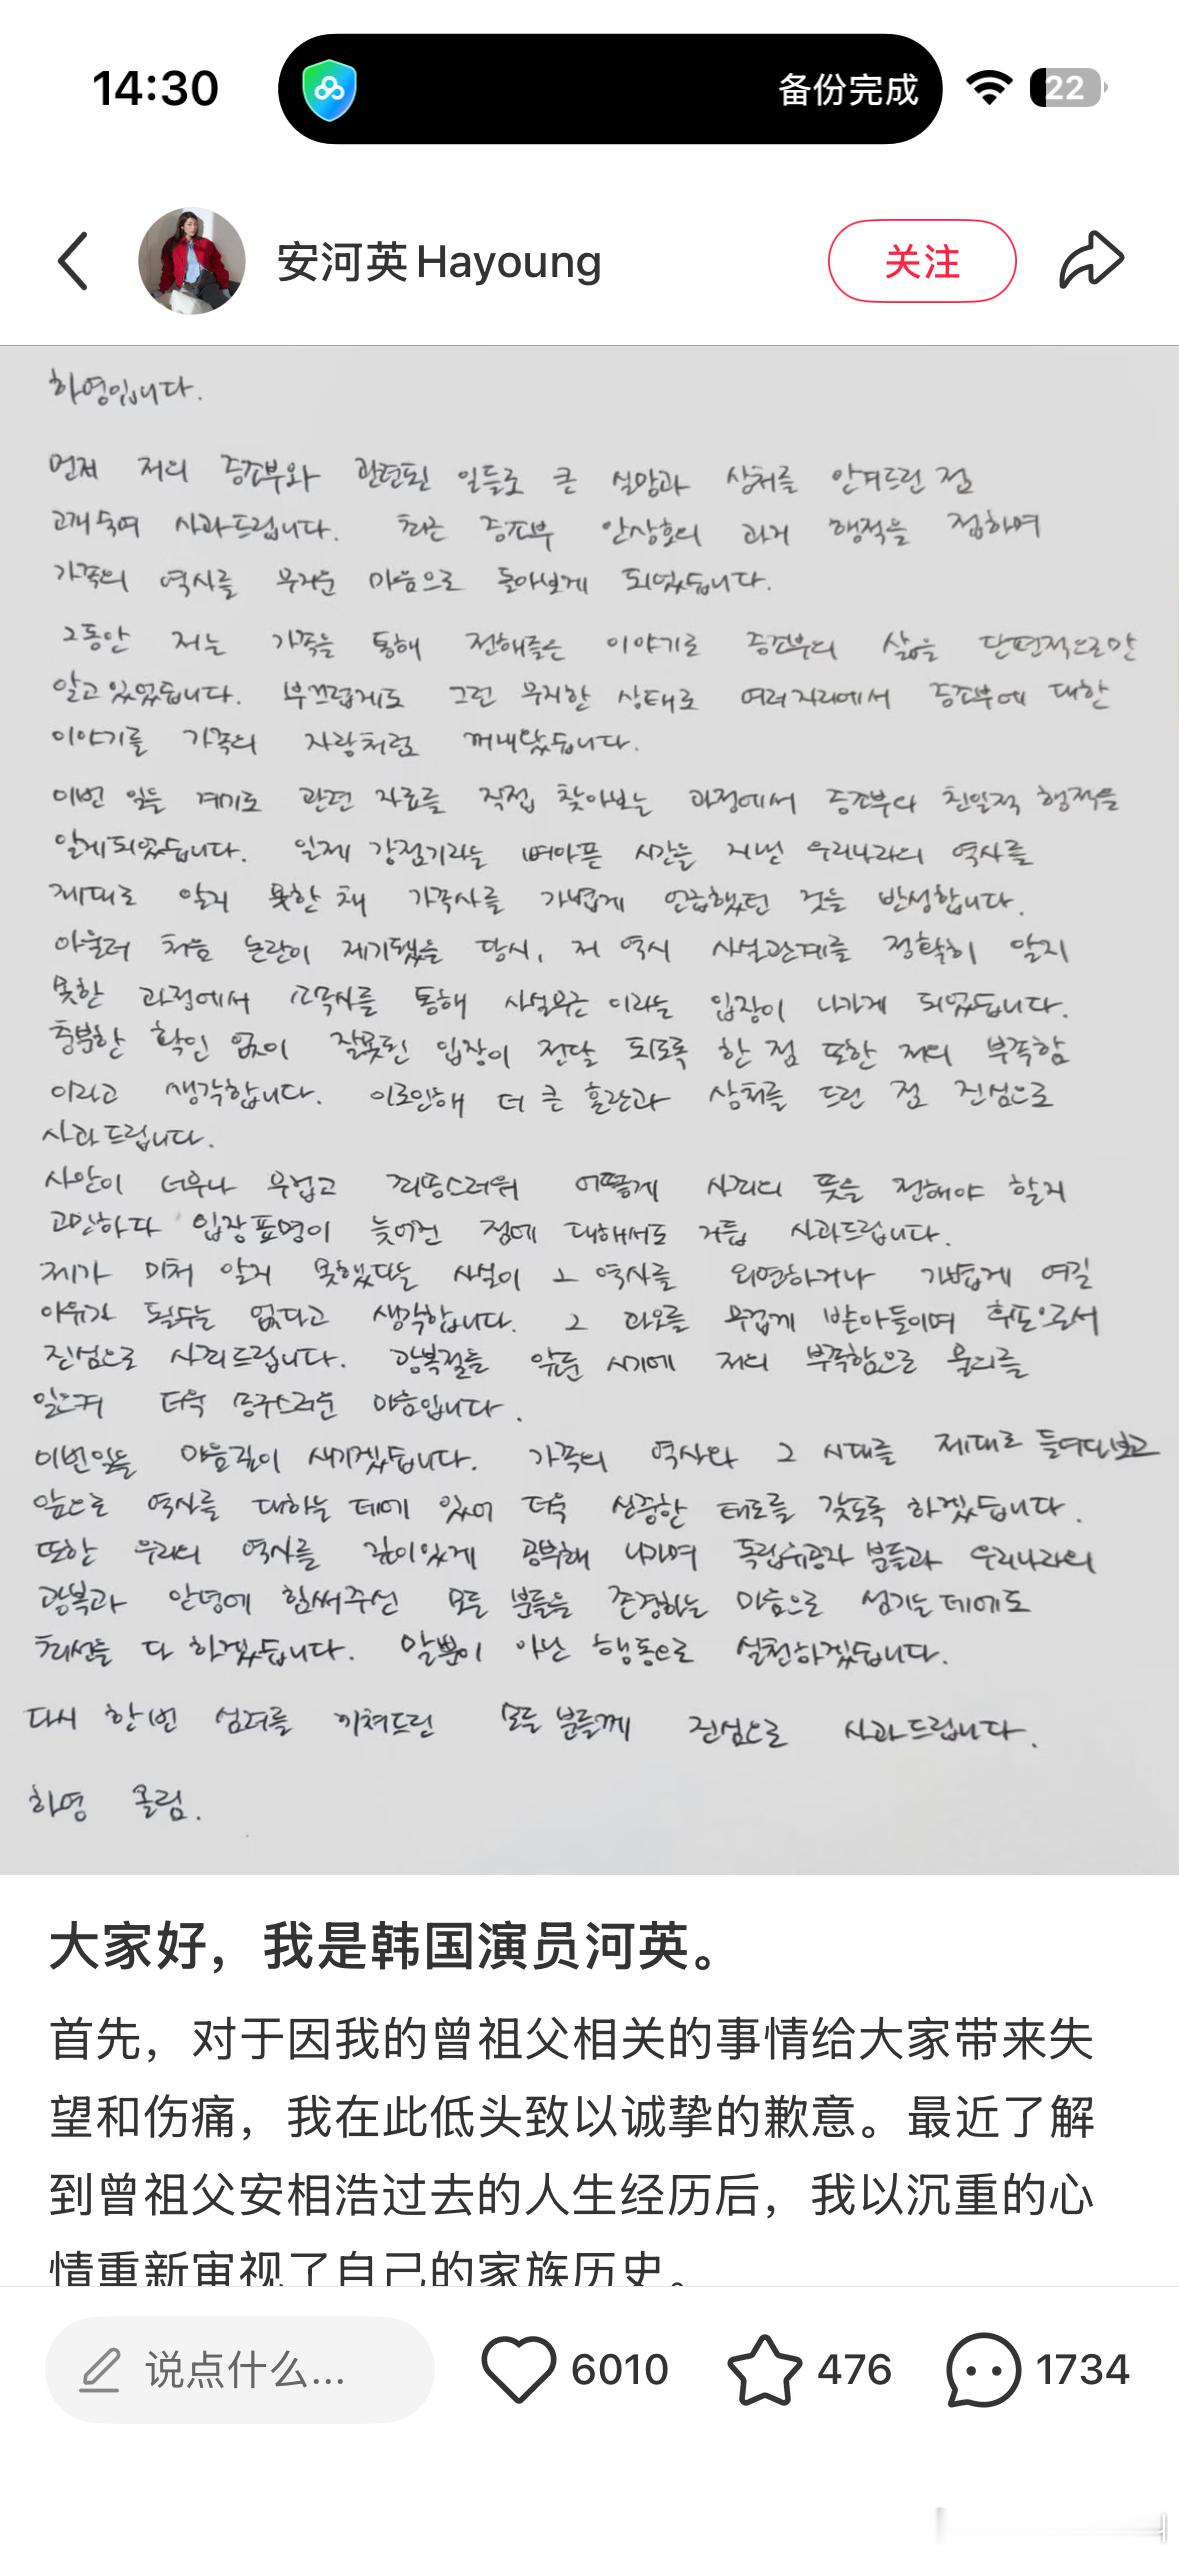 14:30
备份完成
22
安河英Hayoung
关注
하영입니다.
먼저 저의 증조부와 관련된 일들로 큰 실망과 상처를 안겨드린 점
고개 숙여 사과드립니다. 최근 증조부 안상호의 과거 행적을 접하며
가족의 역사를 무거운 마음으로 돌아보게 되었습니다.
그동안 저는 가족을 통해 전해들은 이야기로 증조부의 삶을 단편적으로만
알고 있었습니다. 부끄럽게도 그런 무지한 상태로 여러 자리에서 증조부에 대한
이야기를 가족의 자랑처럼 꺼내왔습니다.
이번 일을 계기로 관련 자료를 직접 찾아보는 과정에서 증조부의 친일적 행적을
알게되었습니다. 일제 강점기라는 뼈아픈 시간을 지낸 우리나라의 역사를
제대로 알지 못한 채 가족사를 가볍게 언급했던 것을 반성합니다.
아울러 처음 논란이 제기됐을 당시, 저 역시 사실관계를 정확히 알지
못한 과정에서 소속사를 통해 사실무근 이라는 입장이 나가게 되었습니다.
충분한 확인 없이 잘못된 입장이 전달 되도록 한 점 또한 저의 부족함
이라고 생각합니다. 이로인해 더 큰 혼란과 상처를 드린 점 진심으로
사과드립니다.
사안이 너무나 무겁고 죄송스러워 어떻게 사죄의 뜻을 전해야 할지
고민하다 입장표명이 늦어진 점에 대해서도 거듭 사과드립니다.
제가 미처 알지 못했다는 사실이 그 역사를 외면하거나 가볍게 여길
이유가 될수는 없다고 생각합니다. 그 과오를 무겁게 받아들이며 후손으로서
진심으로 사죄드립니다. 광복절을 앞둔 시기에 저의 부족함으로 물의를
일으켜 더욱 송구스러운 마음입니다.
이번일을 마음깊이 새기겠습니다. 가족의 역사와 그 시대를 제대로 들여다보고
앞으로 역사를 대하는 데에 있어 더욱 신중한 태도를 갖도록 하겠습니다.
또한 우리의 역사를 깊이있게 공부해 나가며 독립유공자 분들과 우리나라의
광복과 안녕에 힘써주신 모든 분들을 존경하는 마음으로 섬기는데에도
최선을 다 하겠습니다. 말뿐이 아닌 행동으로 실천하겠습니다.
다시 한번 심려를 끼쳐드린 모든 분들께 진심으로 사과드립니다.
하영 올림.
大家好，我是韩国演员河英。
首先，对于因我的曾祖父相关的事情给大家带来失
望和伤痛，我在此低头致以诚挚的歉意。最近了解
到曾祖父安相浩过去的人生经历后，我以沉重的心
情重新审视了自己的家族历史。
说点什么...
6010
476
1734